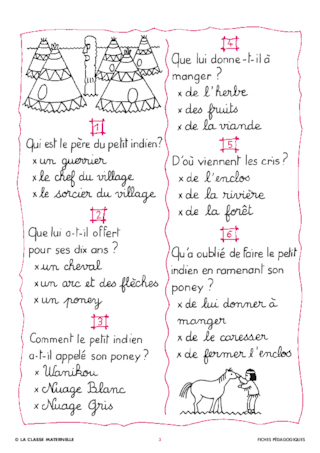 1
Qui est le père du petit indien?
x un guerrier
x le chef du village
x le sorcier du village
2
Que lui a-t-il offert
pour ses dix ans ?
x un cheval
x un arc et des flèches
x un poney
3
Comment le petit indien
a-t-il appelé son poney ?
x Wanikou
x Nuage Blanc
x Nuage Gris
4
Que lui donne-t-il à
manger ?
x de l'herbe
x des fruits
x de la viande
5
D'où viennent les cris ?
x de l'enclos
x de la rivière
x de la forêt
6
Qu'a oublié de faire le petit
indien en ramenant son
poney ?
x de lui donner à
manger
x de le caresser
x de fermer l'enclos
© LA CLASSE MATERNELLE
3
FICHES PÉDAGOGIQUES